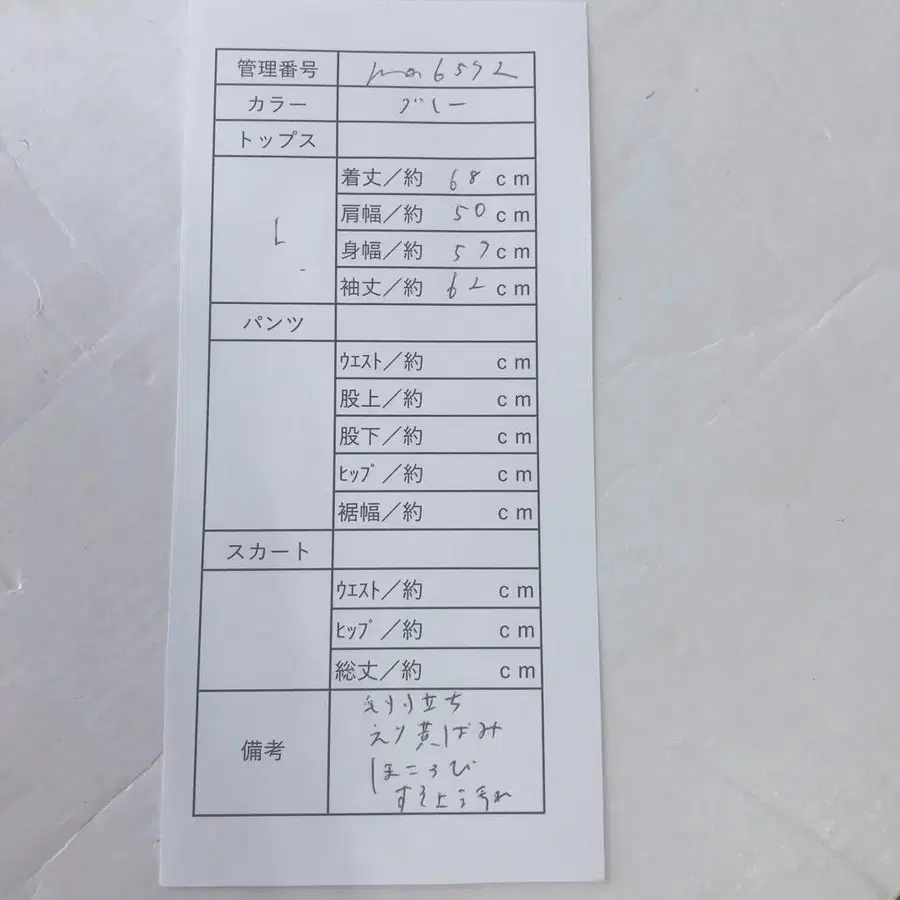 管理番号 ma6592
カラー ブルー
トップス
L
着丈/約 68 cm
肩幅/約 50 cm
身幅/約 57 cm
袖丈/約 62 cm
パンツ
ウエスト/約 cm
股上/約 cm
股下/約 cm
ヒップ/約 cm
裾幅/約 cm
スカート
ウエスト/約 cm
ヒップ/約 cm
総丈/約 cm
備考
毛羽立ち
えり黄ばみ
ほころび
すそ上